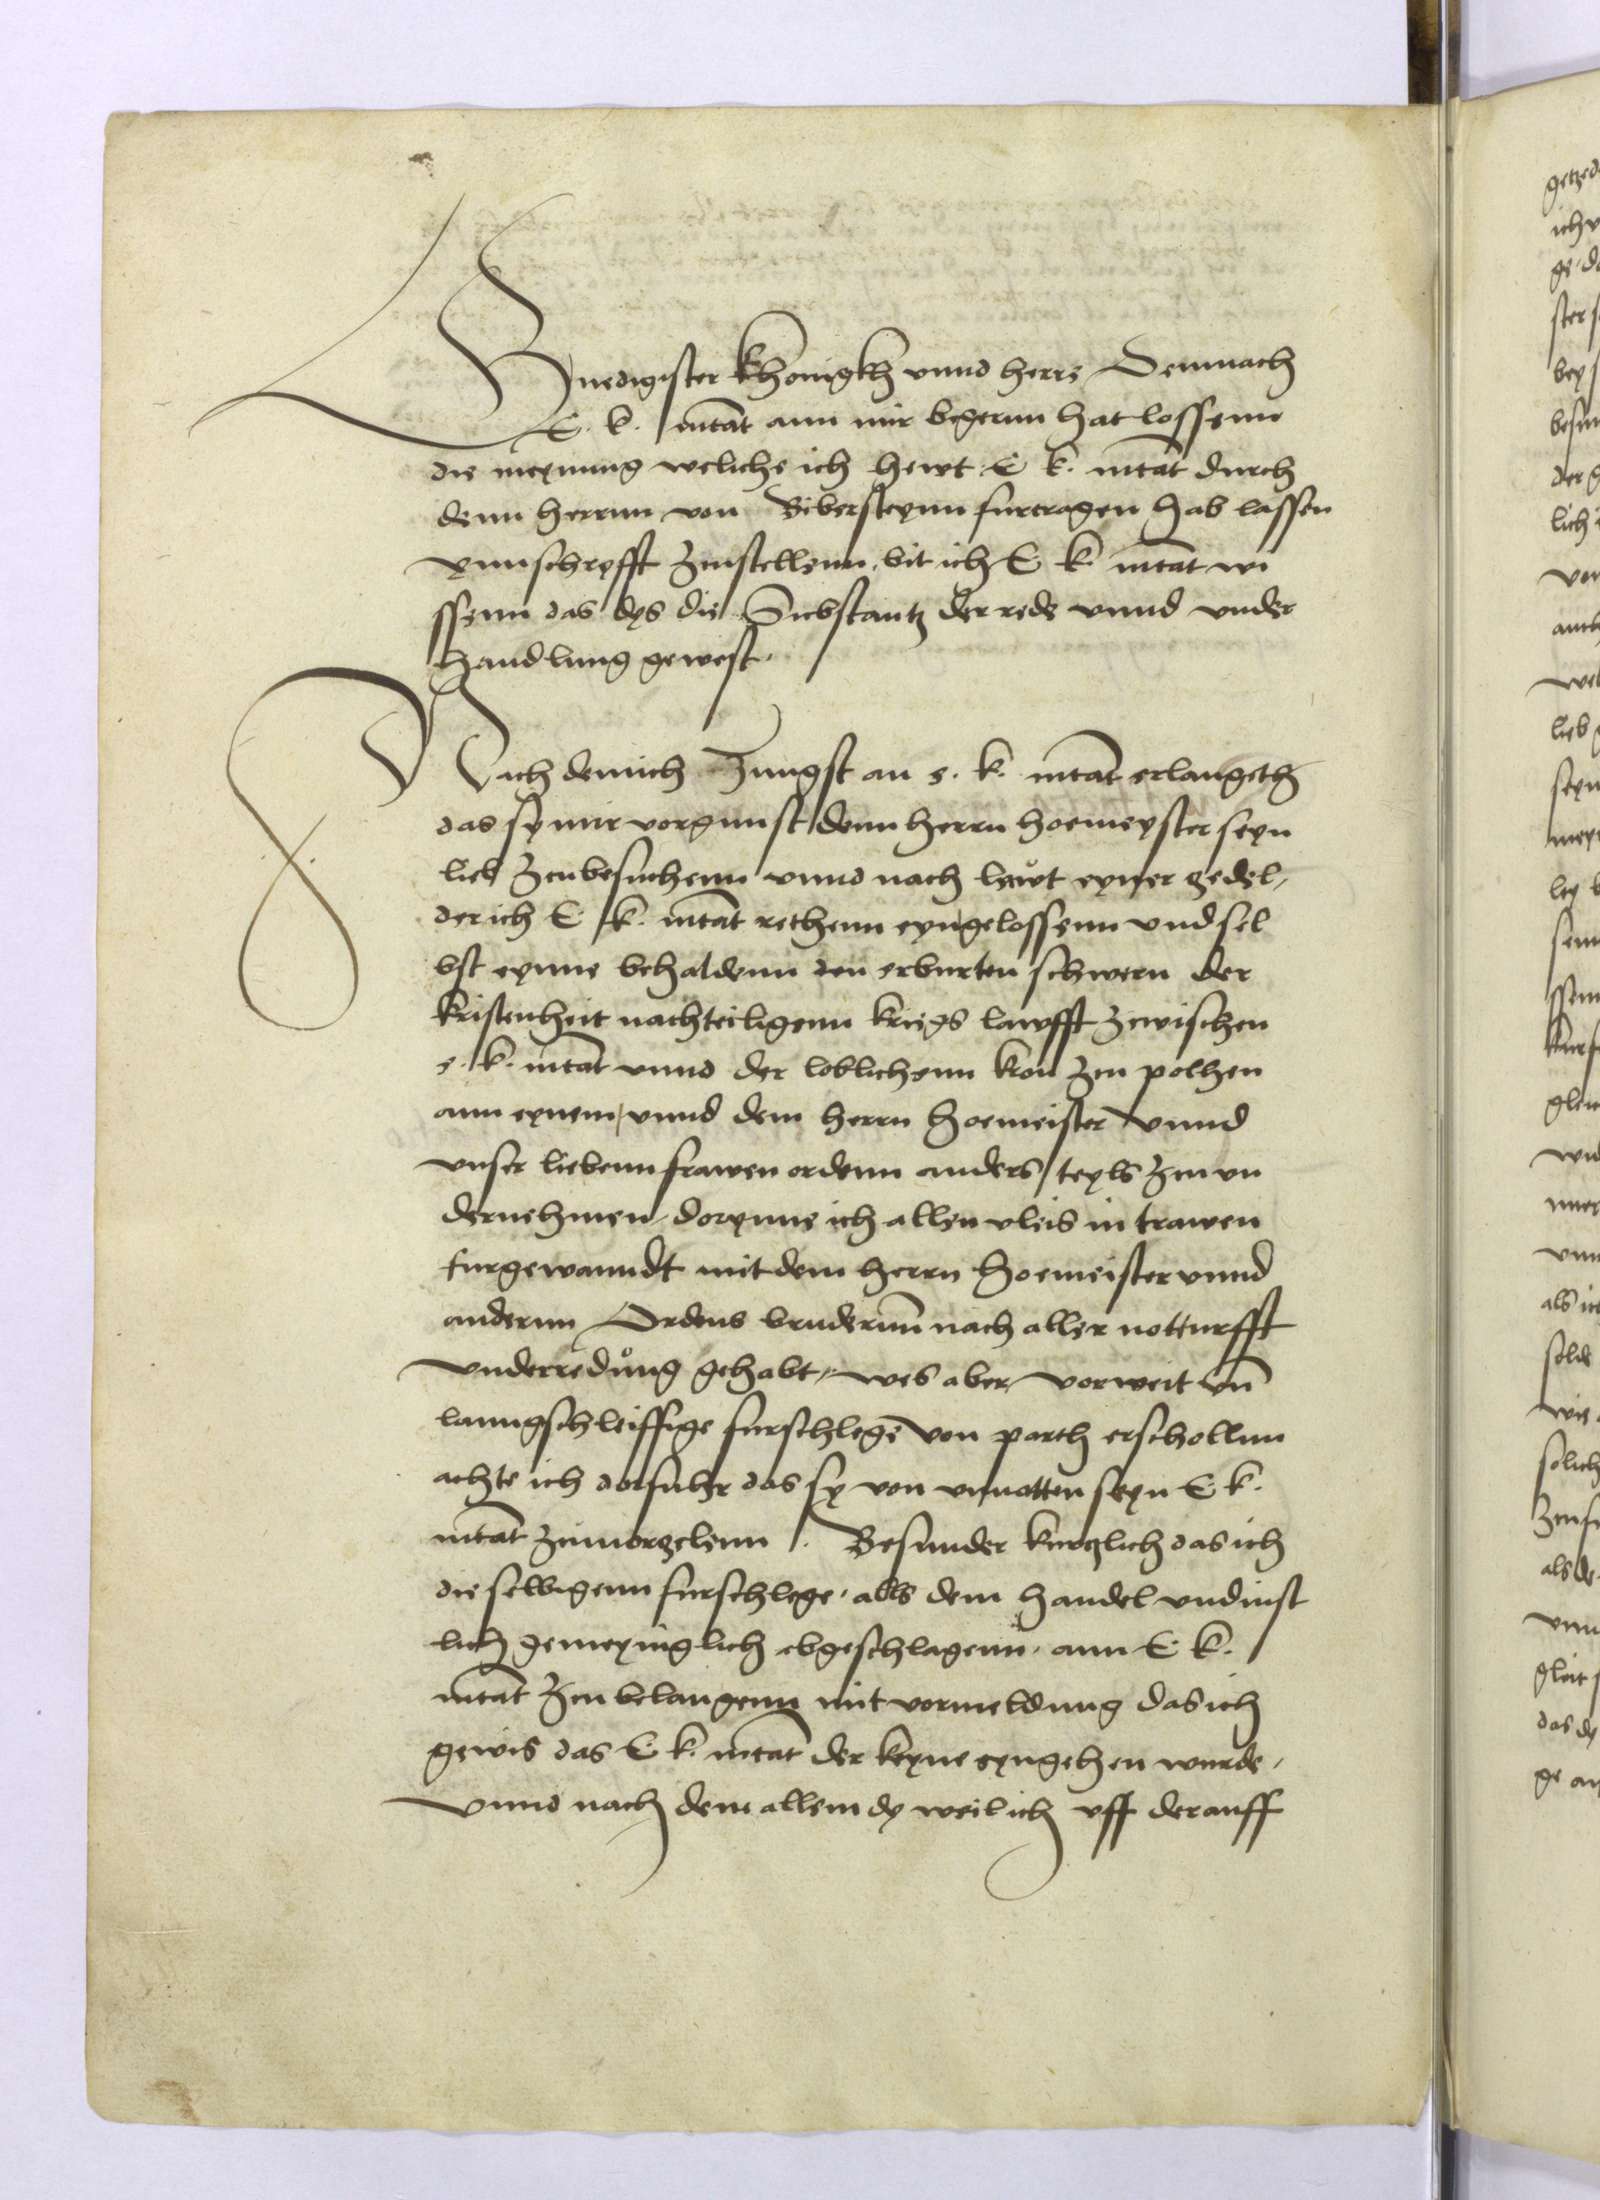 Gnedigister Khonigkh vnnd herre Demnach
E. k. mtat ann mir begernn hat lossenn
die meynung weliche ich hewt E k. mtat durch
denn herrnn von Bibersteynn furtragen hab lassen
ynnschryfft zustellenn, bit ich E k mtat wi
ssenn das dys die Substantz der rede vnnd vnder
handlung gewest.
Nach dem ich Jungst an e. k. mtat erlangeth
das sy mir vorgunst denn herrn hoemeyster seyn
lieb zcu besuchenn vnnd nach lawt eyner zedel,
der ich E k. mtat rethenn eyngelossenn vnd sel
bst eynne behaldenn den erburten schwern der
kristenheit nachteiligenn kriegs lawfft zcwischen
e. k. mtat vnnd der loblichenn kron zcu polhen
ann eynem, vnnd dem herrn Hoemeister vnnd
vnser liebenn frawen ordenn anders teyls zcu vn
dernehmen, dorynne ich allen vleis in trawen
furgewanndt mit dem herrn Hoemeister vnnd
andernn Ordens brudernn nach aller notturfft
vnderredung gehabt, wes aber vorweit vn
lanngschleiffige furschlege von parth erschollnn
achte ich dofuhr das sy von vnnotten seyn E k.
mtat zuuorzelenn. Besunder kurtzlich das ich
die selbigenn furschlege. alls dem handel vndinst
lich gemeyniglich abgeschlagenn. ann E k.
mtat zcu belangenn mit vormeldung das ich
gewis das E k. mtat der keyne eyngehen wurde,
Vnnd nach dem allem dy weil ich vff derauff